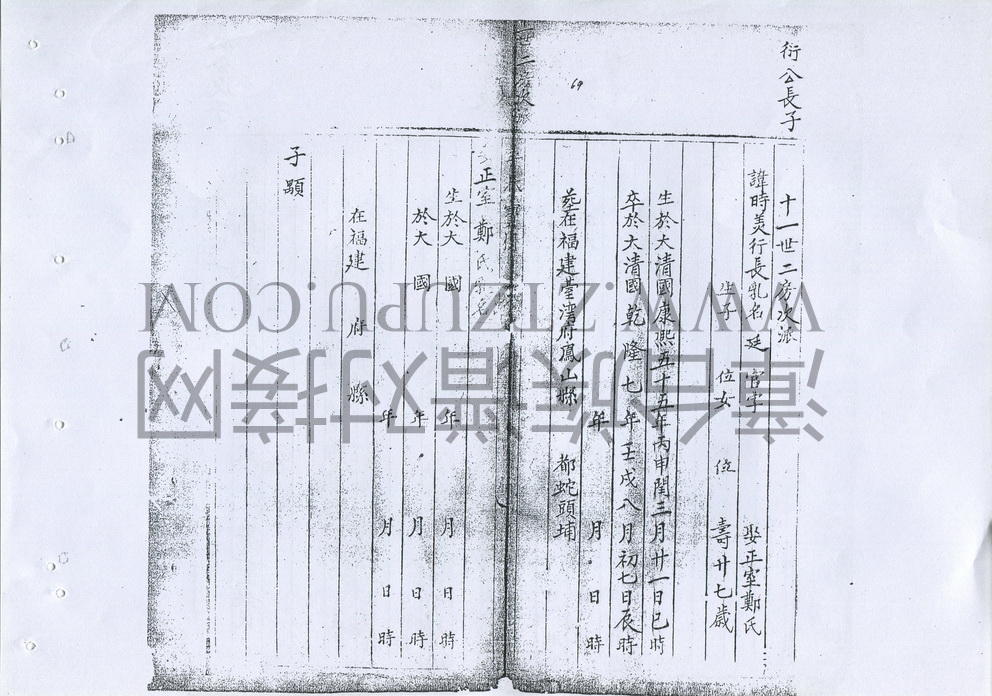 衍公長子
69
十一世二房次派
諱時美行長乳名廷 官字 娶正室鄭氏
生子 位女 位 壽廿七歲
生於大清國康熙五十五年丙申閏三月廿一日巳時
卒於大清國乾隆七年壬戌八月初七日辰時
年 月 日 時
葬在福建臺灣府鳳山縣 都蛇頭埔
正室鄭氏
生於大 國 年 月 日 時
於大 國 年 月 日 時
年 月 日 時
在福建 府 縣
子顯
WWW.ZTZUPU.COM
漳台族谱对接网